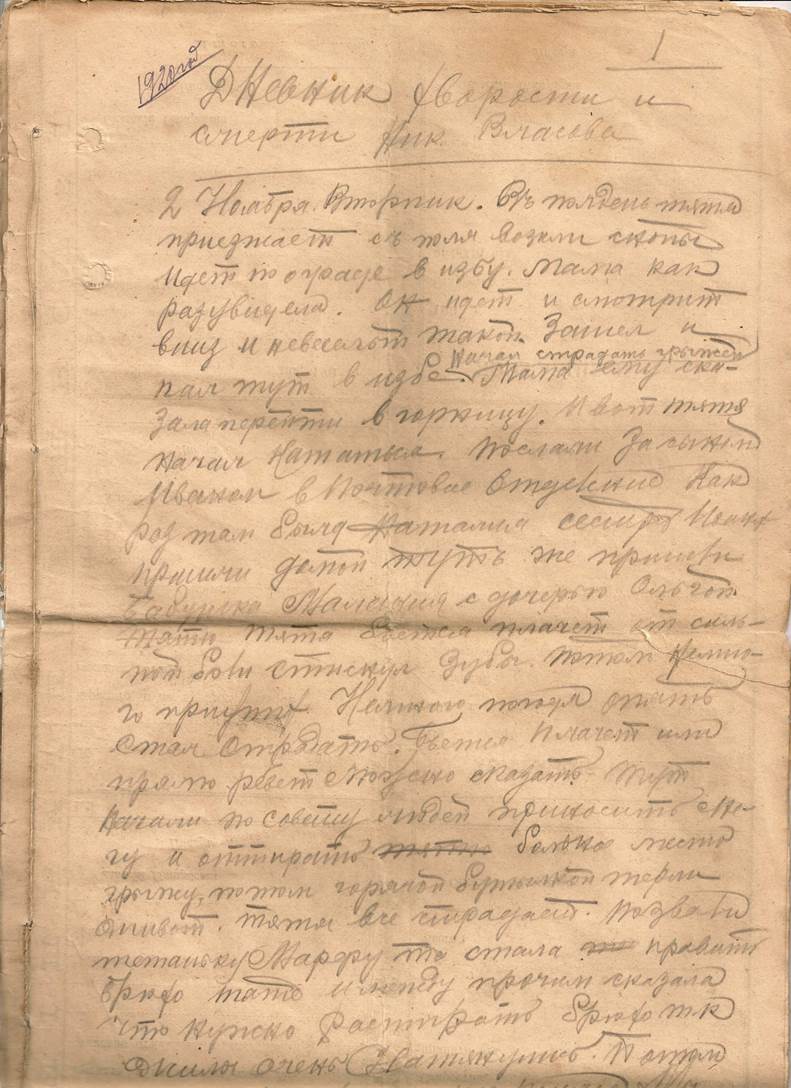 1920 год
1
Дневник хворости и
смерти Ник Власова
2 Ноября. Вторник. Въ полдень тятя
приезжает съ поля возили снопы
Идет по ограде в избу. Мама как
разувидела. Он идет и смотрит
вниз и невеселый такой. Зашел и
Начал страдать грыжей
пал тут в избе. Мама ему ска-
зала перейти в горницу. И вот тятя
начал кататься. Послали за сыном
Иваном в Почтовое Отделение Как
роз там была Наталия сестра
пришли домой тутъ же пришли
Бабушка с дочерью Ольгой
тятя бьется плачет от силь-
ной боли стиснул зубы. Потом немно-
го притих Немного погодя опять
стал страдать. Бьется плачет или
прямо ревет можно сказать. Тут
начали по совету людей приносить сне-
гу и оттирать больное место
грыжу, потом горячей бутылкой терли
живот. тятя все страдает. Позвали
тетаньку Марфу та стала править
брюхо тяте и между прочим сказала
что нужно растирать брюхо т.к
жилы очень натянулись. Потом